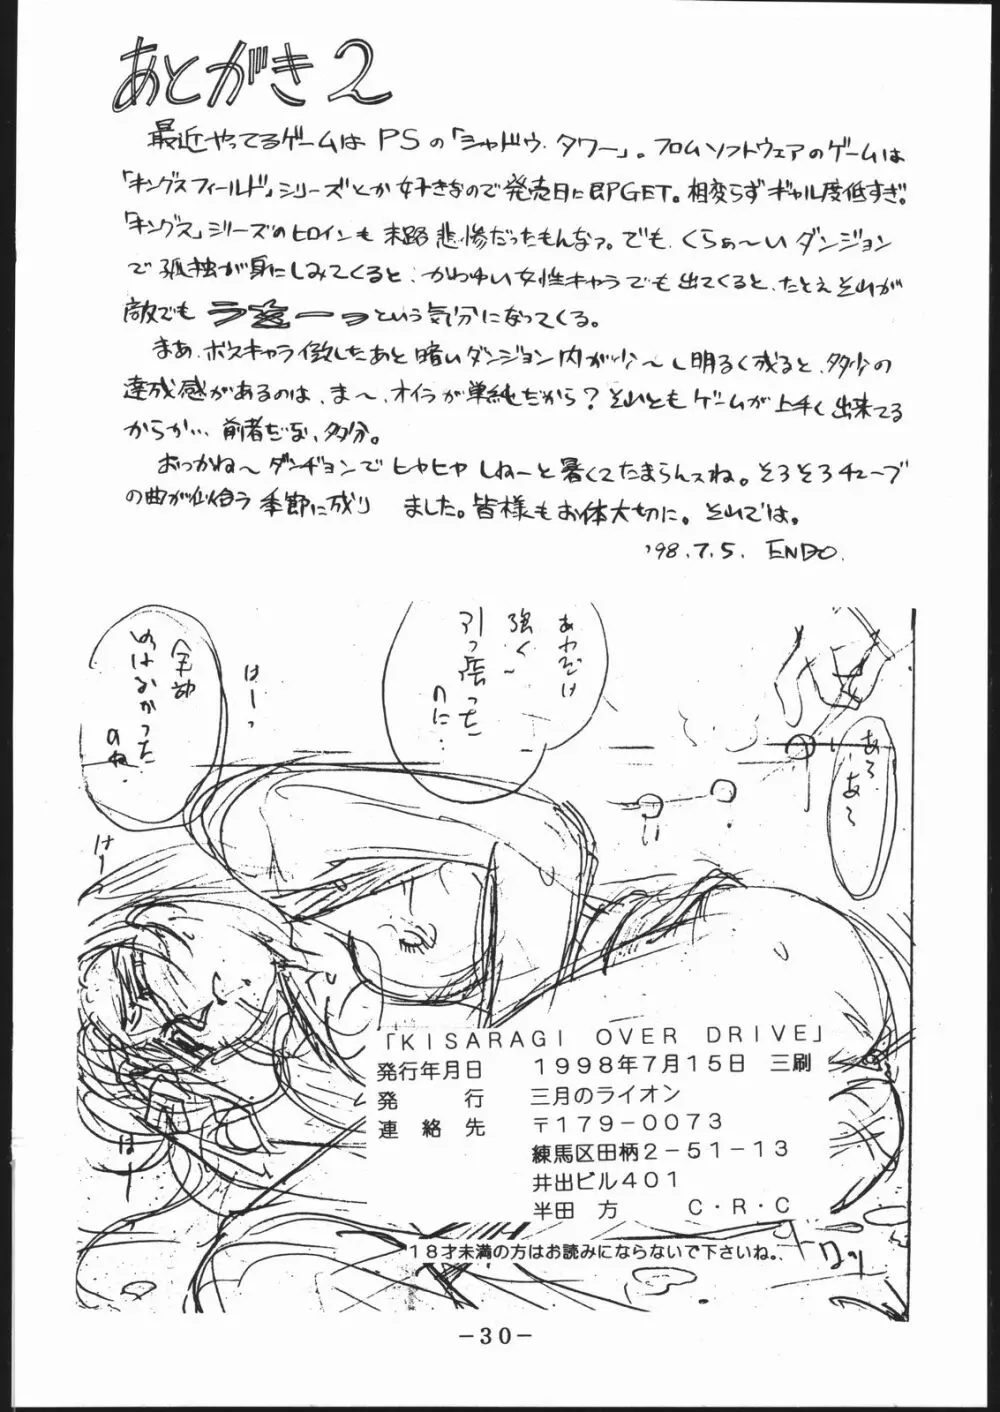 あとがき2
最近やってるゲームはPSの「シャドウ・タワー」。フロムソフトウェアのゲームは
「キングスフィールド」シリーズとか好きなので発売日に即GET。相変らずギャル度低すぎ。
「キングス」シリーズのヒロインも末路悲惨だったもんなァ。でも、くらぁ〜いダンジョン
で孤独が身にしみてくると、かわゆい女性キャラでも出てくると、たとえそれが
敵でも という気分になってくる。
まあ、ボスキャラ倒したあと暗いダンジョン内が少〜し明るく成ると、多少の
達成感があるのは、ま〜、オイラが単純だから?それともゲームが上手く出来てる
からか…前者だな、多分。
おっかね〜ダンヂョンでヒヤヒヤしねーと暑くてたまらんスね。そろそろチューブ
の曲が似合う季節に成りました。皆様もお体大切に。それでは。
'98.7.5. ENDO.
あれだけ
強く〜
引っ張った
のに…
全部
ぬけなかった
のね…
はーっ
はーっ
はーっ
あらあら
「KISARAGI OVER DRIVE」
発行年月日 1998年7月15日 三刷
発行 三月のライオン
連絡先 〒179-0073
練馬区田柄2-51-13
井出ビル401
半田 方 C・R・C
18才未満の方はお読みにならないで下さいね。
-30-